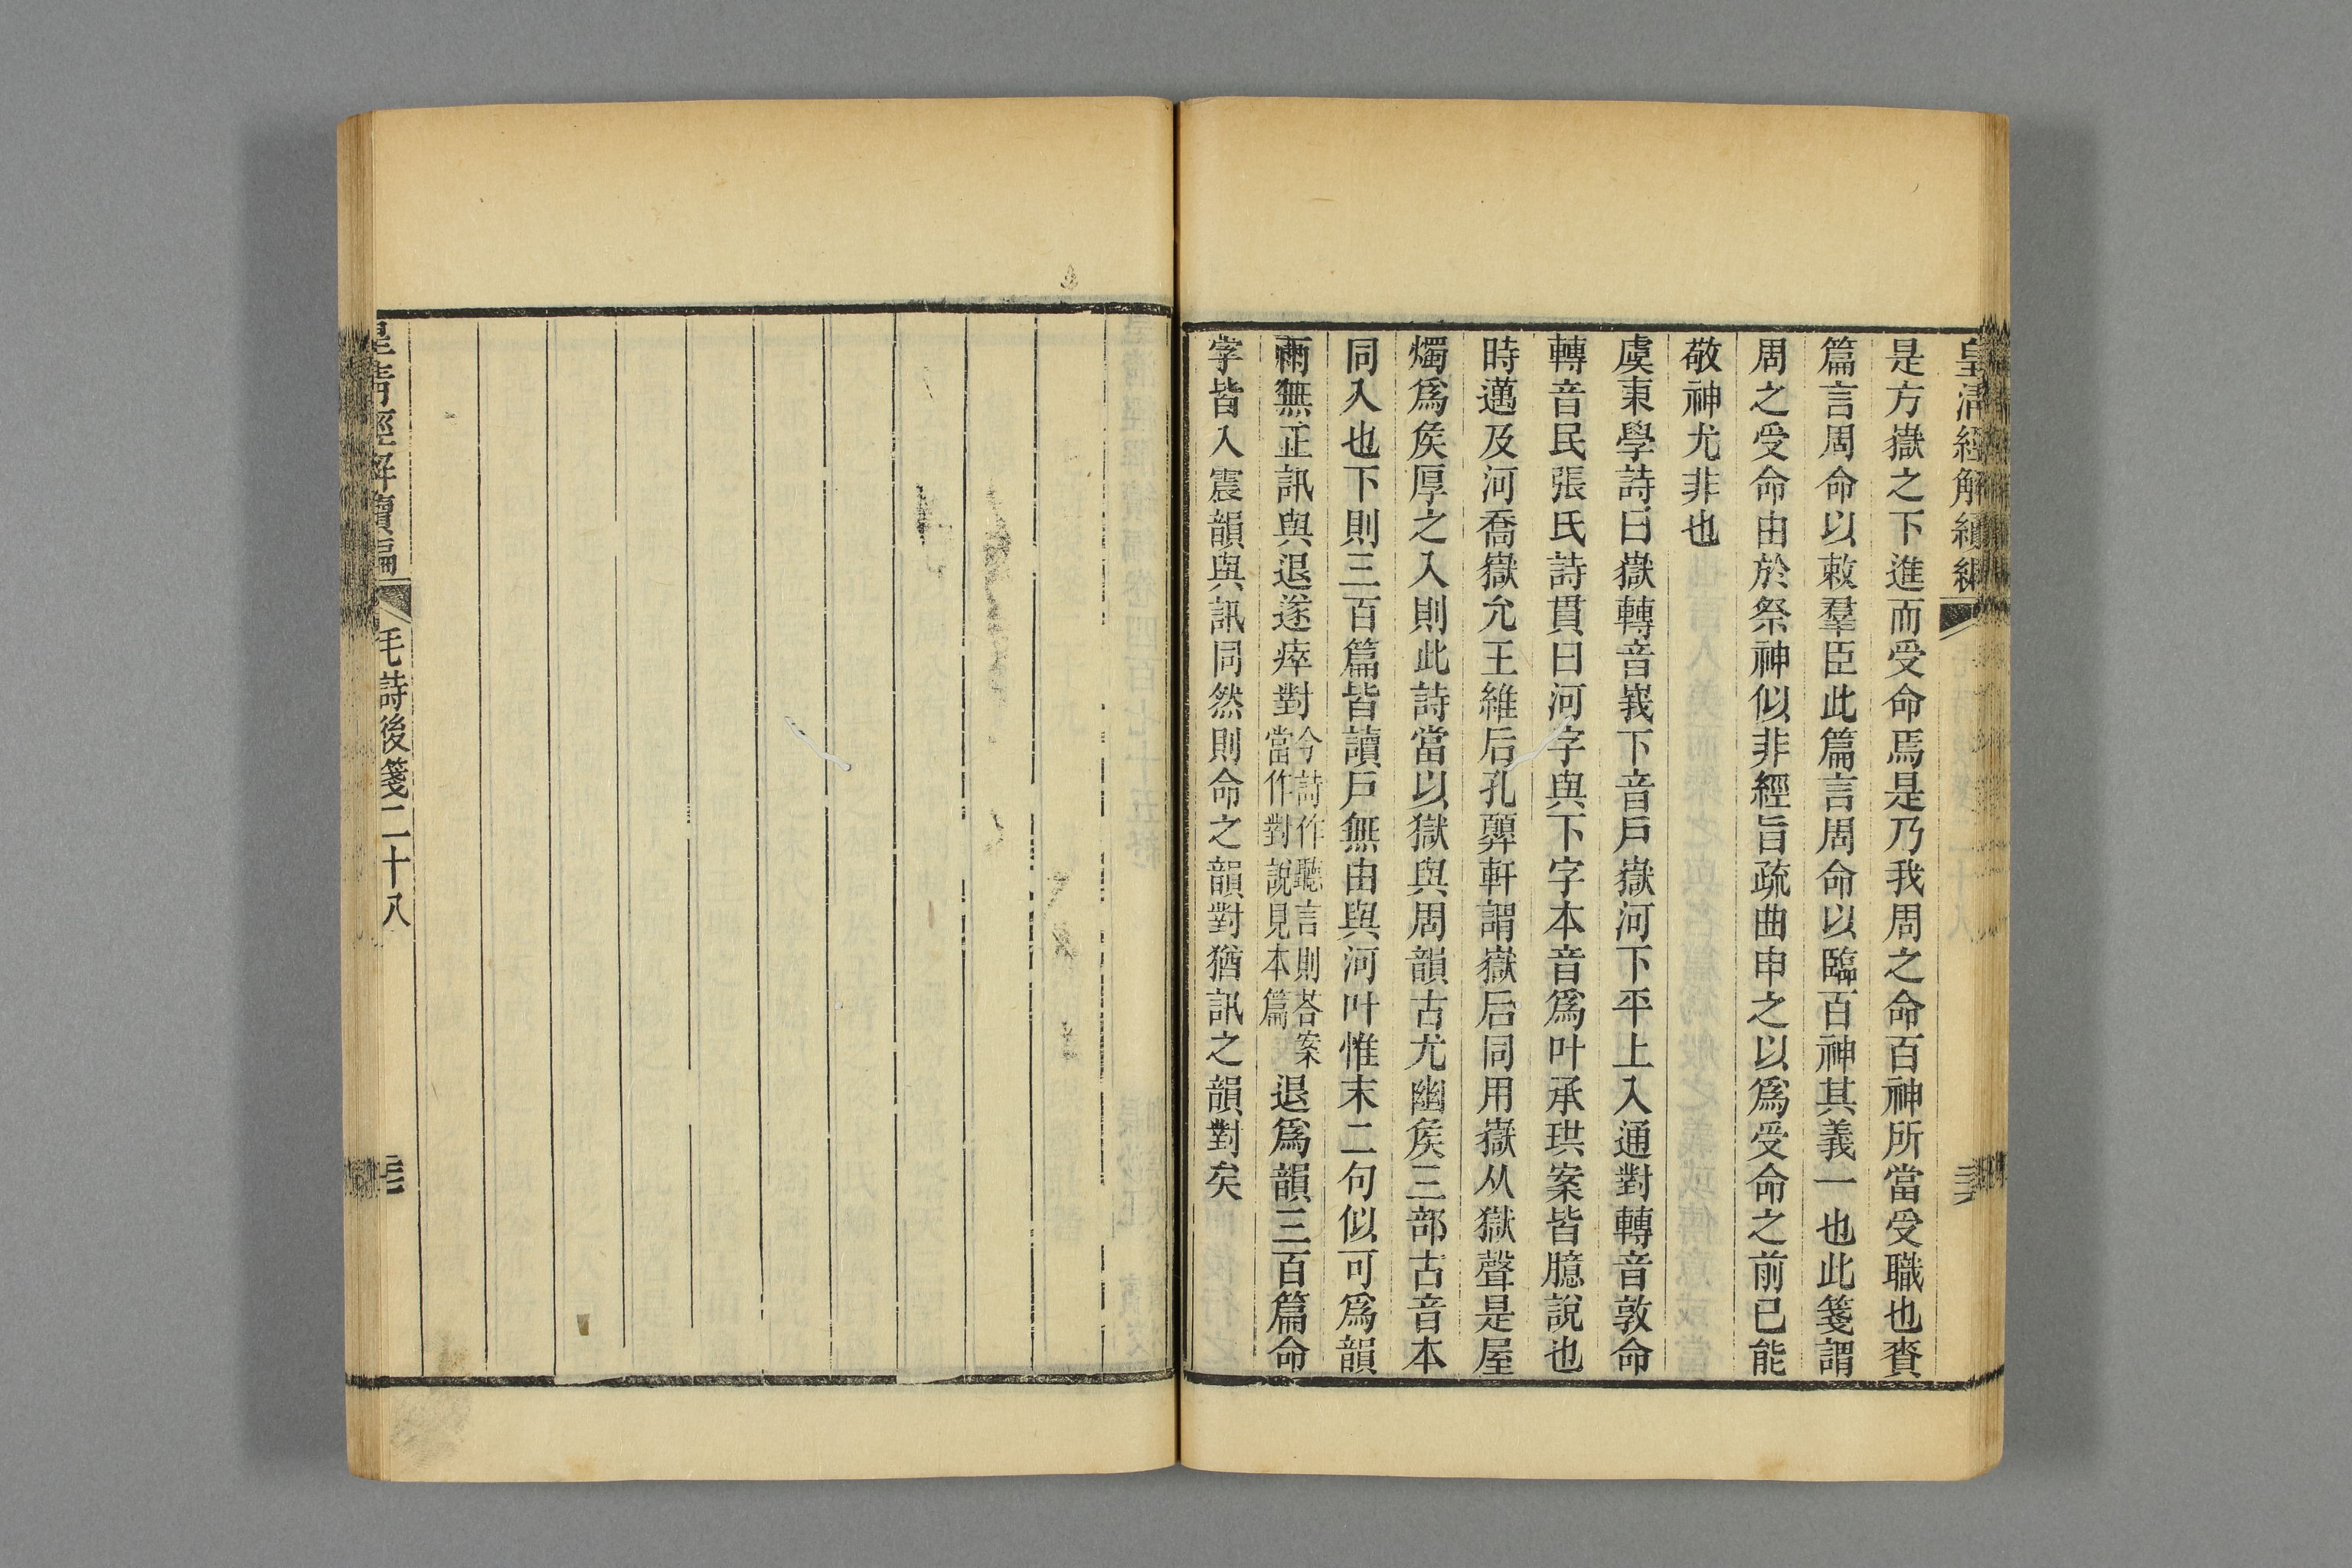 皇清經解續編
是方嶽之下進而受命焉是乃我周之命百神所當受職也賚
篇言周命以敕羣臣此篇言周命以臨百神其義一也此箋謂
周之受命由於祭神似非經旨疏曲申之以爲受命之前已能
敬神尤非也
虞東學詩曰嶽轉音峩下音戶嶽河下平上入通對轉音敦命
轉音民張氏詩貫曰河字與下字本音爲叶承珙案皆臆說也
時邁及河喬嶽允王維后孔顨軒謂嶽后同用嶽从獄聲是屋
燭爲矦厚之入則此詩當以獄與周韻古尤幽矦三部古音本
同入也下則三百篇皆讀戶無由與河叶惟末二句似可爲韻
雨無正訊與退遂瘁對今詩作聽言則荅案當作對說見本篇退爲韻三百篇命
字皆入震韻與訊同然則命之韻對猶訊之韻對矣
皇清經解續編
毛詩後箋二十八